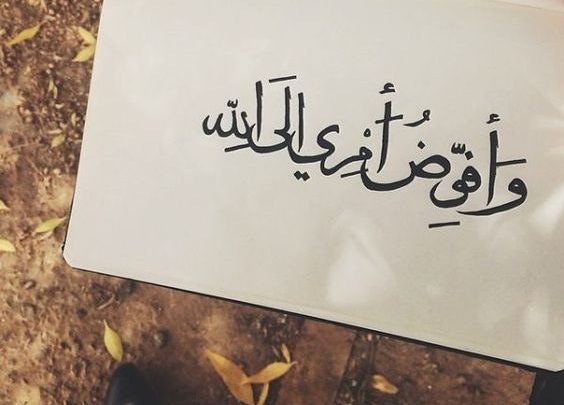 وَأُفَوِّضُ أَمْرِي إِلَى اللَّهِ